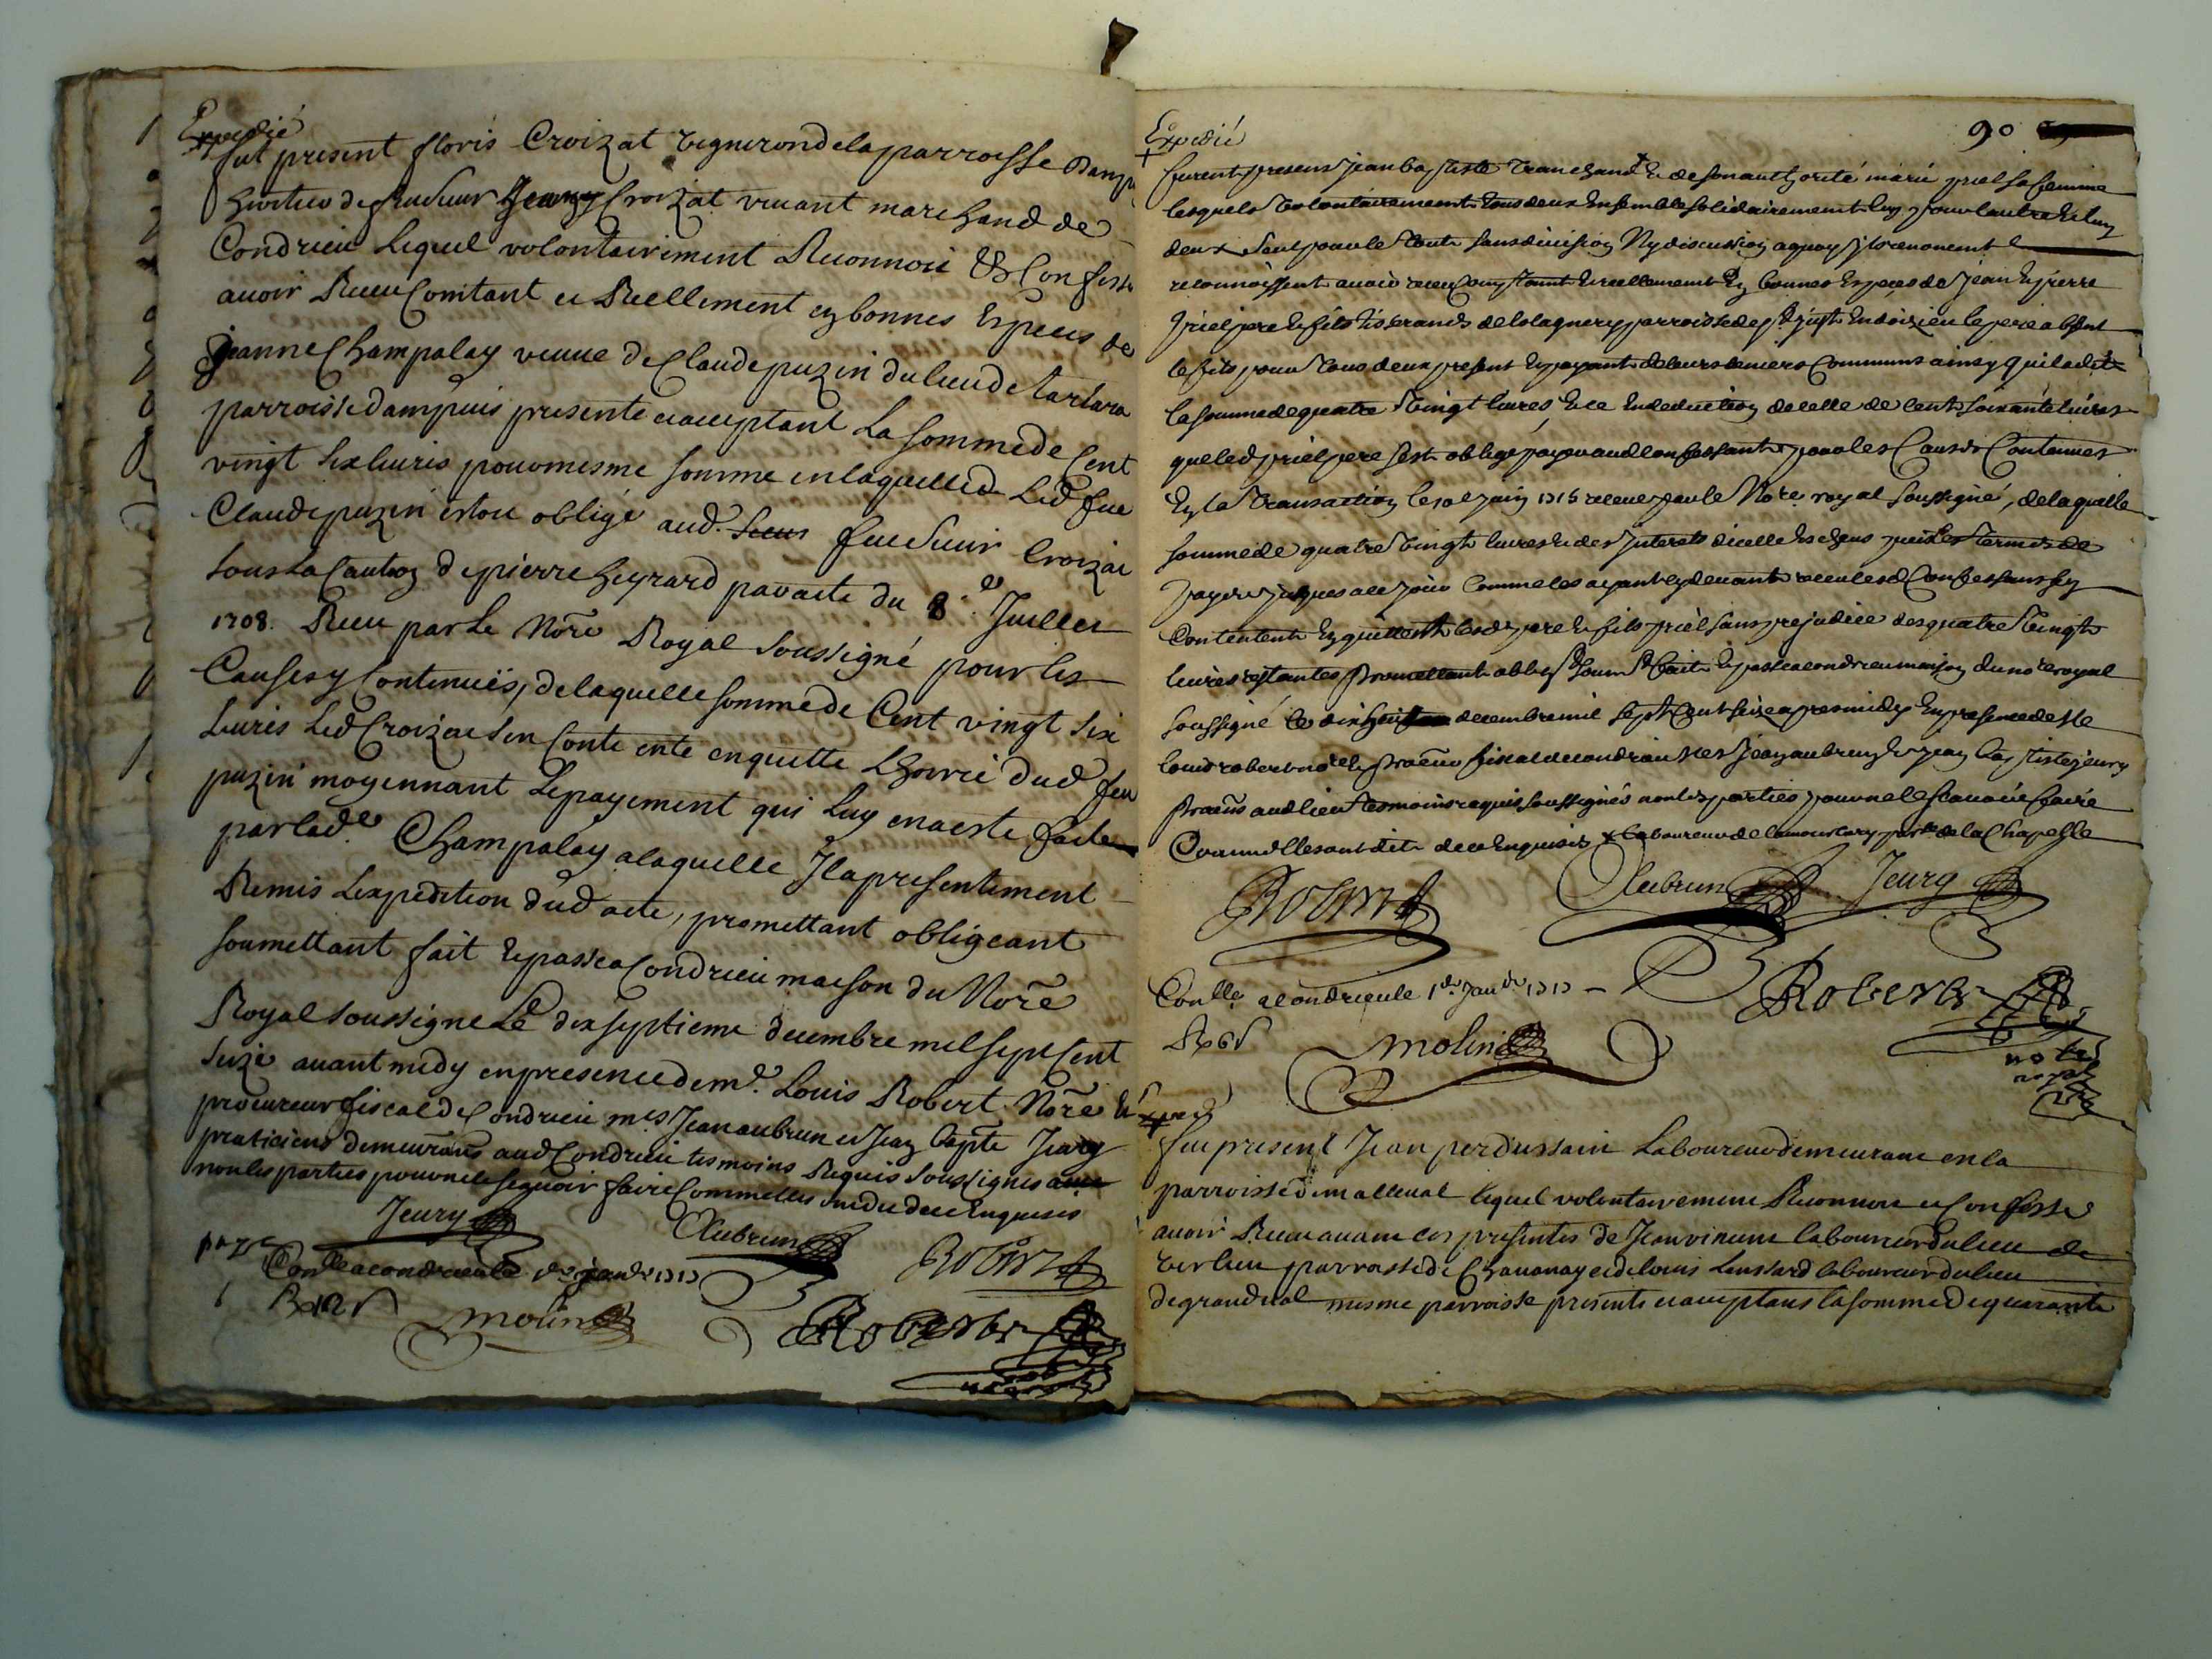 Expedié
fut present floris Croizat vigneron de la parroisse Dampuis
heritier de feu sieur Jeany Croizat vivant marchand de
Condrieu Lequel volontairement Reconnoit Et Confesse
avoir Receu Contant et Reellement en bonnes Especes de
Jeanne Champalay veuve de Claude puzin du lieu de tartara
parroisse dampuis presente et acceptant La somme de Cent
vingt six livres pour mesme somme en laquelle led feu
Claude puzin estoit obligé aud. feu Sieur Croizat
sous La Caution de pierre heyrard par acte du 8e Juillet
1708. Receu par Le Nore Royal soussigné pour les
Causes y Contenuës, de laquelle somme de Cent vingt six
livres Led Croizat sen Contente en quitte L'hoirie dud feu
puzin moyennant Le payement qui luy en a esté fait
par lade Champalay a laquelle Il a presentement
Remis L'expedition dud acte, promettant obligeant
soumettant fait Et passé a Condrieu maison du Nore
Royal soussigné Le dix septieme decembre mil sept Cent
seize avant midy en presence de me Louis Robert Nore Et
procureur fiscal de Condrieu mes Jean aubrun et Jean Bapte Jeury
praticiens demeurans aud Condrieu tesmoins Requis soussignés
non les parties pour ne le sçavoir faire Comme elles ont dit de ce Enquises
Jeury Aubrun Robert
page
Conlle a condrieu le 1er janvr 1717
R 12 s molin Robert
90
Expedié
furent presens Jean baptiste tranchand & de son authorité marie priel sa femme
lesquels volontairement tous deux Ensemble solidairement lun pour lautre Et lun
deux seul pour le tout sans division Ny discussion a quoy ils renoncent
reconnoissent avoir receu Comptant Et reellement En bonnes Especes de Jean Et pierre
priel pere Et fils tisserands de parroisse de st just En doizieu le pere absent
le fils pour tous deux present Et payant de leurs deniers Communs ainsy quil a dit
la somme de quatre vingt livres Et ce En deduction de celle de Cent soixante livres
que led priel pere sest obligé payer aud Confessants pour les Causes Contenues
En la transaction le juin 1715 receue par le Nore royal soussigné, de laquelle
somme de quatre vingt livres Et des Interets dicelle
payer jusques a ce jour Comme les ayant cy devant receu lesd Confessants sen
Contentent En quittent lesd pere Et fils priel sans prejudice des quatre vingt
livres restantes promettant oblig soum fait Et passé a condrieu maison du nore royal
soussigné le dix decembre mil sept Cent seize apres midy En presence de me
louis robert nore Et procur fiscal de condrieu mes Jean aubrun Et Jean baptiste jeury
pratens aud lieu tesmoins requis soussignés non les parties pour ne le scavoir faire
Comme Elles ont dit de ce Enquises x laboureur de parsse de la Chapelle
Robert Aubrun Jeury
Conlle a condrieu le 1er janvr 1717
R 6 s molin Robert
notre
royal
Exped
fut present Jean perdussain Laboureur demeurant en la
parroisse de malleval lequel volontairement Reconnoit et Confesse
avoir Receu avant ces presentes de Jean vinem laboureur du lieu de
verlieu parroisse de Chavanay et de louis Lussard laboureur du lieu
de grandval mesme parroisse presents et acceptans la somme de quarante